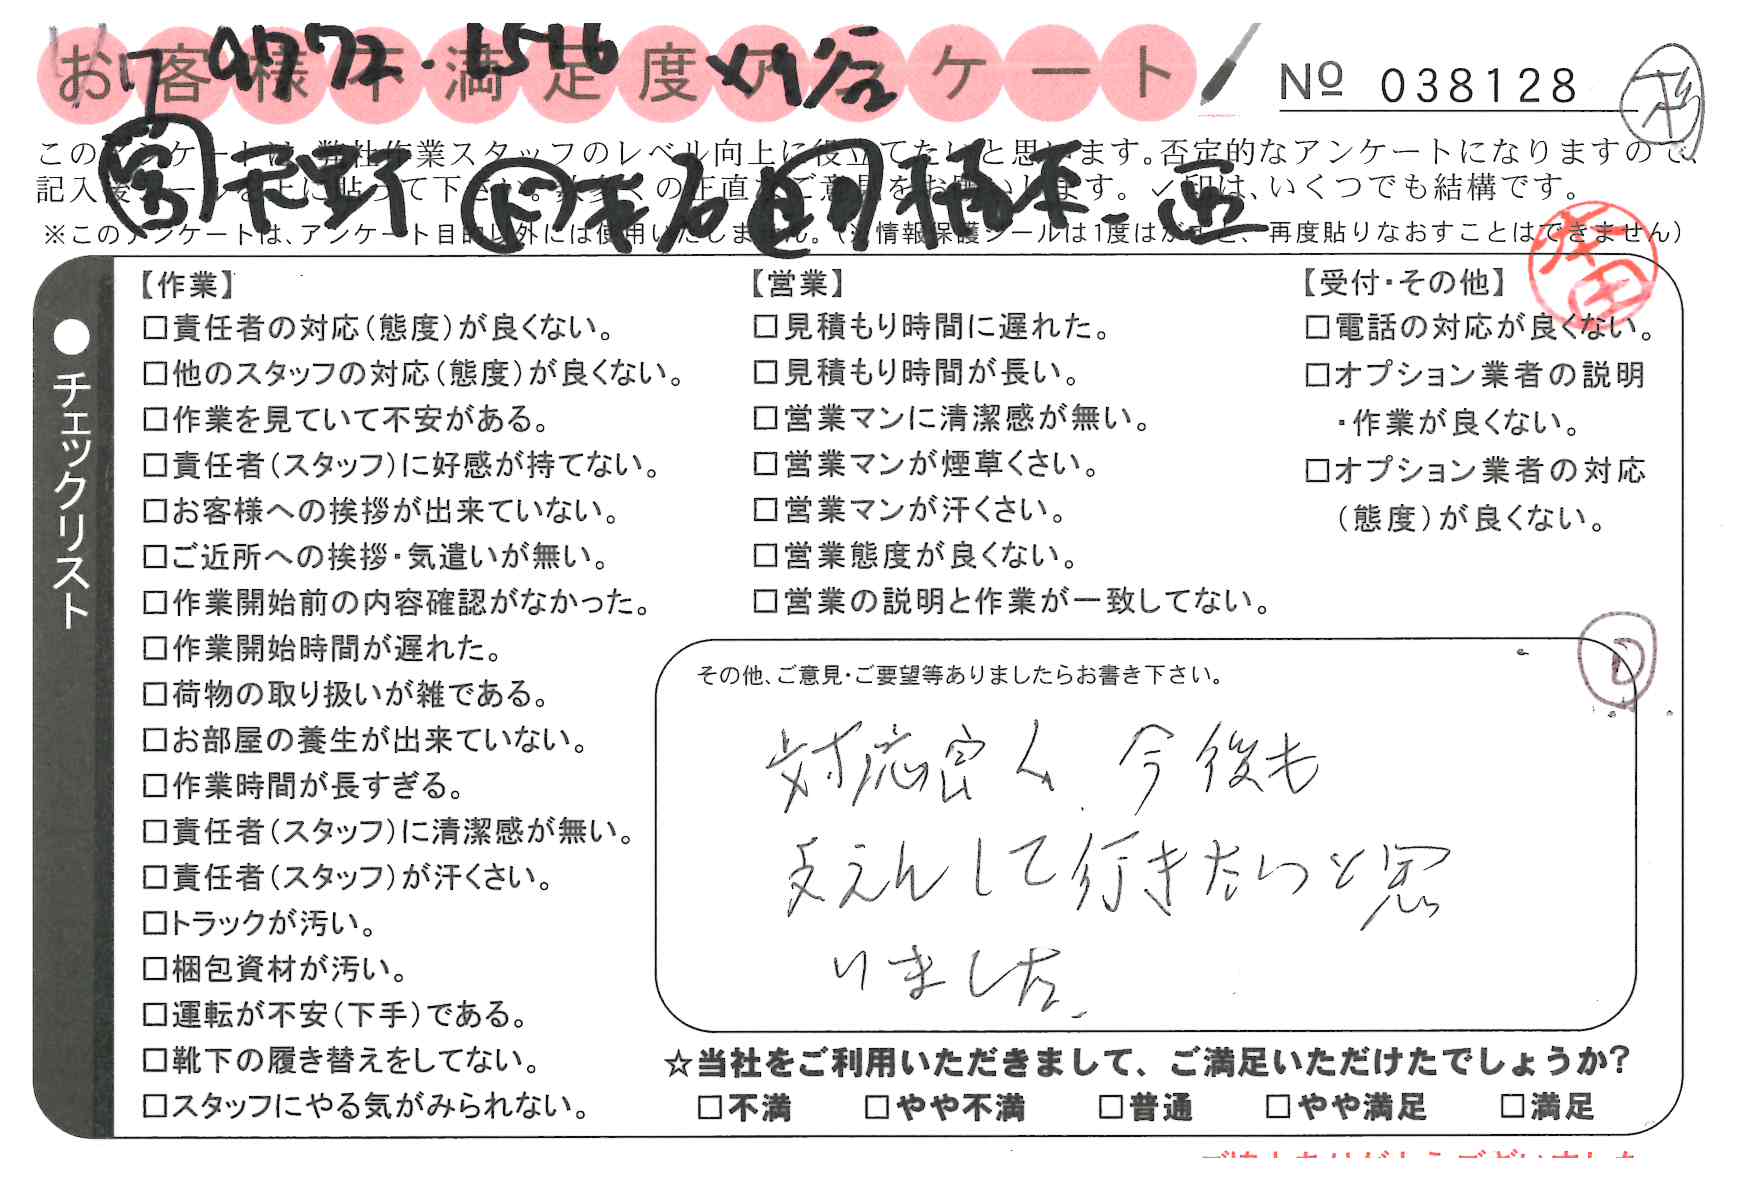 お客様不満足度アンケート
№ 038128
このアンケートは、弊社作業スタッフのレベル向上に役立てたいと思います。否定的なアンケートになりますので、
記入後シールを上に貼って下さい。数多くの正直なご意見をお願いします。✓印は、いくつでも結構です。
※このアンケートは、アンケート目的以外には使用いたしません。(※情報保護シールは1度はがすと、再度貼りなおすことはできません)
●チェックリスト
【作業】
□責任者の対応(態度)が良くない。
□他のスタッフの対応(態度)が良くない。
□作業を見ていて不安がある。
□責任者(スタッフ)に好感が持てない。
□お客様への挨拶が出来ていない。
□ご近所への挨拶・気遣いが無い。
□作業開始前の内容確認がなかった。
□作業開始時間が遅れた。
□荷物の取り扱いが雑である。
□お部屋の養生が出来ていない。
□作業時間が長すぎる。
□責任者(スタッフ)に清潔感が無い。
□責任者(スタッフ)が汗くさい。
□トラックが汚い。
□梱包資材が汚い。
□運転が不安(下手)である。
□靴下の履き替えをしてない。
□スタッフにやる気がみられない。
【営業】
□見積もり時間に遅れた。
□見積もり時間が長い。
□営業マンに清潔感が無い。
□営業マンが煙草くさい。
□営業マンが汗くさい。
□営業態度が良くない。
□営業の説明と作業が一致してない。
【受付・その他】
□電話の対応が良くない。
□オプション業者の説明
・作業が良くない。
□オプション業者の対応
(態度)が良くない。
その他、ご意見・ご要望等ありましたらお書き下さい。
対応良く、今後も
支えんして行きたいと思
いました。
☆当社をご利用いただきまして、ご満足いただけたでしょうか?
□不満 □やや不満 □普通 □やや満足 □満足